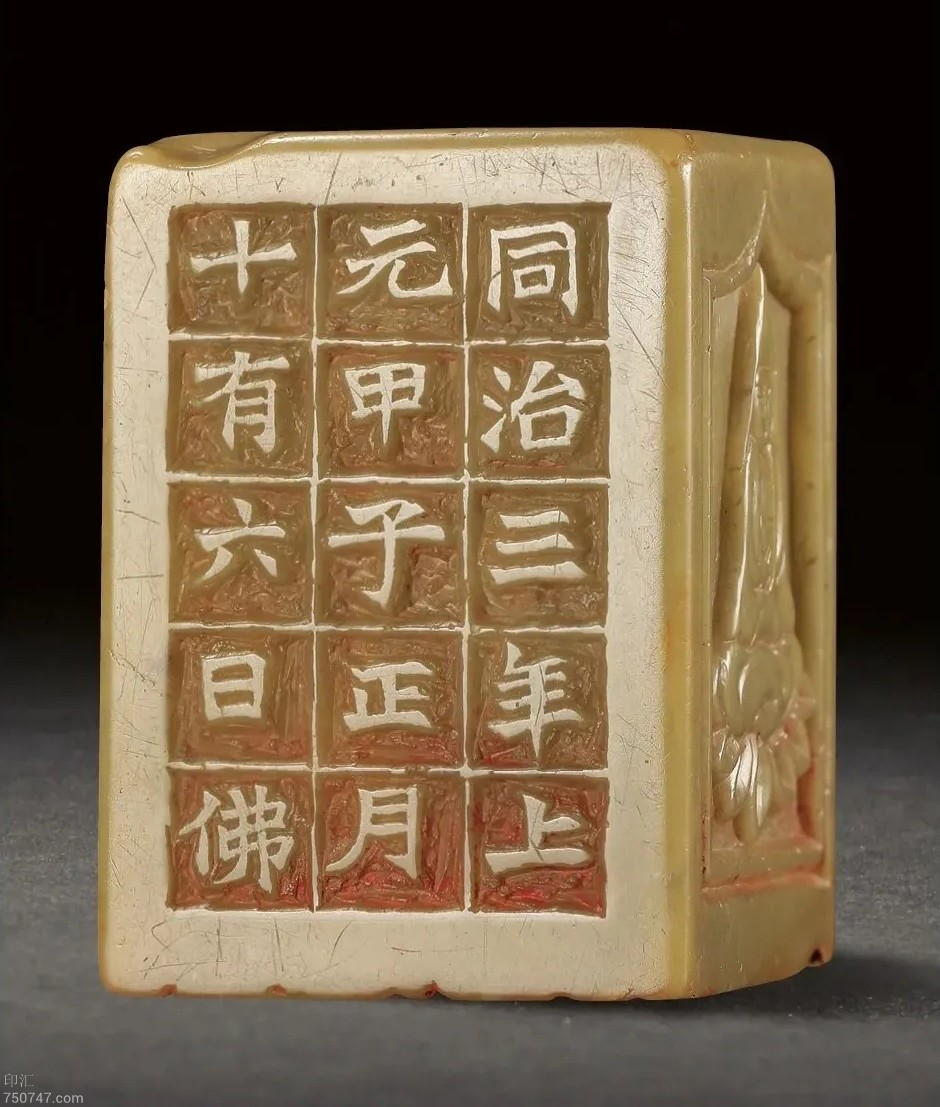 同治三年上
元甲子正月
十有六日佛
印汇
750747.com